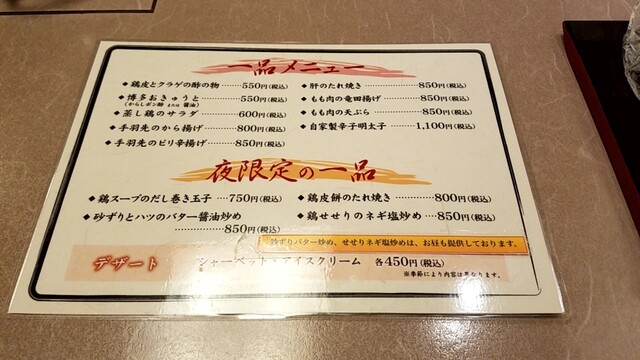 一品メニュー
◆鶏皮とクラゲの酢の物……550円(税込)
◆博多おきゅうと…………550円(税込)
(からしポン酢 または 醤油)
◆蒸し鶏のサラダ…………600円(税込)
◆手羽先のから揚げ………800円(税込)
◆手羽先のピリ辛揚げ……850円(税込)
◆肝のたれ焼き……………850円(税込)
◆もも肉の竜田揚げ………850円(税込)
◆もも肉の天ぷら…………850円(税込)
◆自家製辛子明太子……1,100円(税込)
夜限定の一品
◆鶏スープのだし巻き玉子…750円(税込)
◆砂ずりとハツのバター醤油炒め
……………850円(税込)
◆鶏皮餅のたれ焼き………800円(税込)
◆鶏せせりのネギ塩炒め…850円(税込)
砂ずりバター炒め、せせりネギ塩炒めは、お昼も提供しております。
デザート
シャーベット・アイスクリーム 各450円(税込)
※季節により内容は異なります。